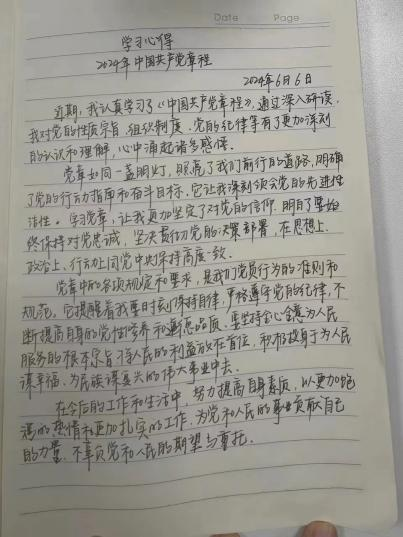 Date Page
学习心得
2024年中国共产党章程
2024年6月6日
近期，我认真学习了《中国共产党章程》，通过深入研读，
我对党的性质宗旨、组织制度、党的纪律等有了更加深刻
的认识和理解，心中涌起诸多感悟。
党章如同一盏明灯，照亮了我们前行的道路，明确
了党的行动指南和奋斗目标。它让我深刻领会党的先进性
洁性。学习党章，让我更加坚定了对党的信仰，明白了要始
终保持对党忠诚，坚决贯彻党的决策部署，在思想上、
政治上、行动上同党中央保持高度一致。
党章中的各项规定和要求，是我们党员行为的准则和
规范。它提醒着我要时刻保持自律，严格遵守党的纪律，不
断提高自身的党性修养和道德品质。要坚持全心全意为人民
服务的根本宗旨，将人民的利益放在首位，积极投身于为人民
谋幸福、为民族谋复兴的伟大事业中去。
在今后的工作和生活中，努力提高自身素质，以更加饱
满的热情和更加扎实的工作，为党和人民的事业贡献自己
的力量，不辜负党和人民的期望与重托。